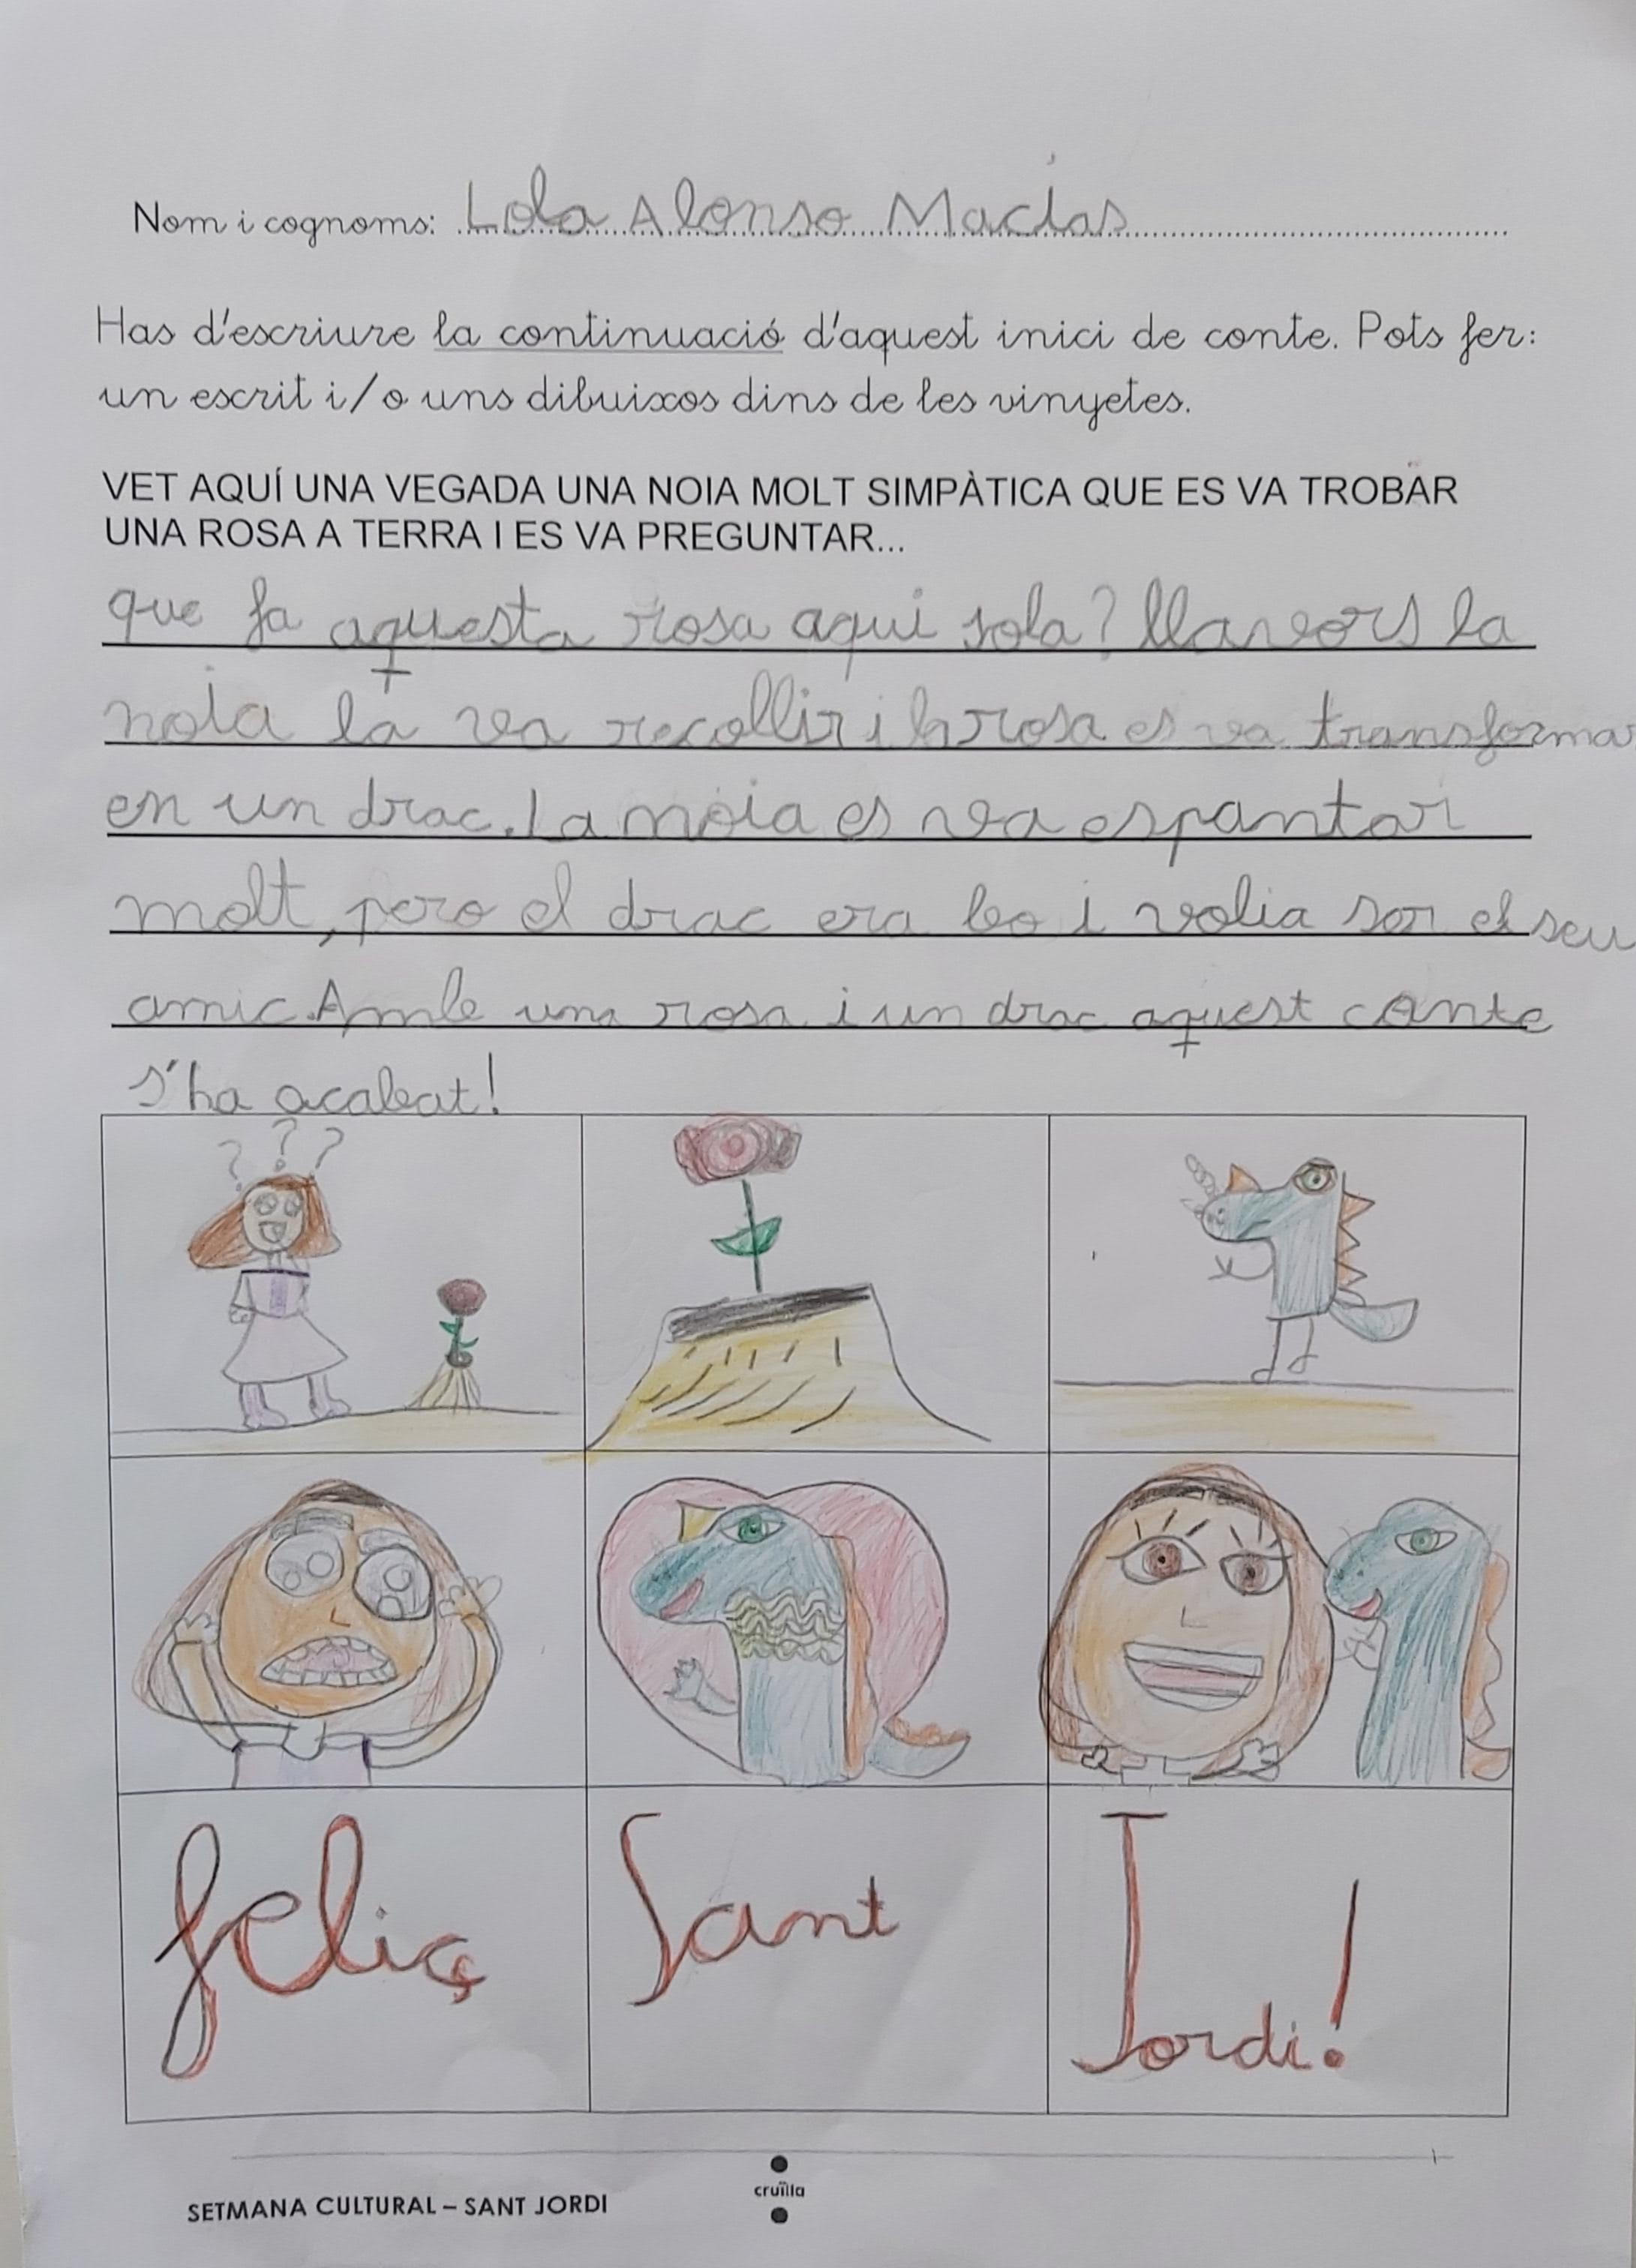 Nom i cognoms: Lola Alonso Macías
Has d'escriure la continuació d'aquest inici de conte. Pots fer:
un escrit i/o uns dibuixos dins de les vinyetes.
VET AQUÍ UNA VEGADA UNA NOIA MOLT SIMPÀTICA QUE ES VA TROBAR
UNA ROSA A TERRA I ES VA PREGUNTAR...
que fa aquesta rosa aqui sola? llavors la
noia la va recollir i la rosa es va transformar
en un drac. La noia es va espantar
molt, pero el drac era bo i volia ser el seu
amic. Amb una rosa i un drac aquest conte
s'ha acabat!
? ? ?
feliç Sant Jordi!
SETMANA CULTURAL – SANT JORDI
cruïlla